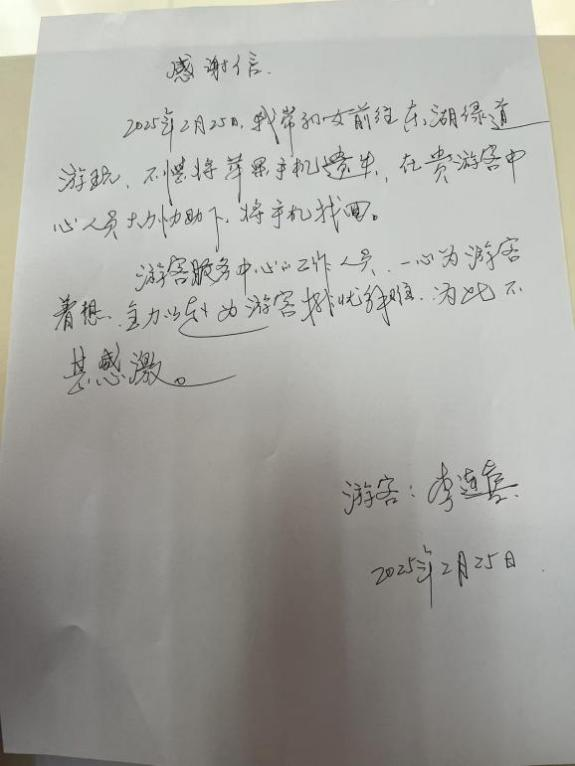 感谢信
2025年2月25日，我带妇女前往东湖绿道
游玩，不慎将苹果手机遗失，在贵游客中
心人员大力协助下，将手机找回。
游客服务中心的工作人员，一心为游客
着想，全力以赴为游客排忧解难，为此不
甚感激。
游客：李连
2025年2月25日